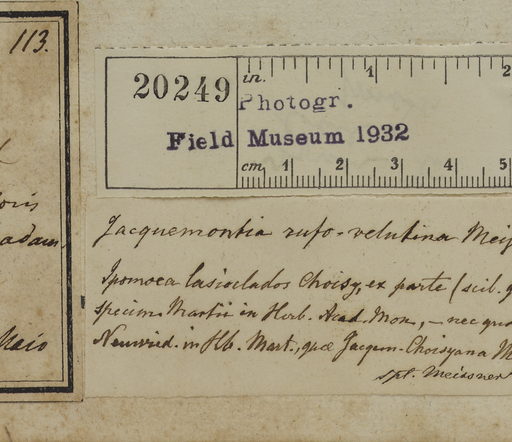 113.
oris
adam,
Maio
20249
in. 1 2
Photogr.
Field Museum 1932
cm 1 2 3 4 5
Jacquemontia rufo-velutina Meiss
Ipomoea lasioclados Choisy, ex parte (scil. q
specim. Martii in Herb. Acad. Mon., – nec quo
Neuwied. in Hb. Mart., quae Jacquem. Choisyana M
spt. Meissner